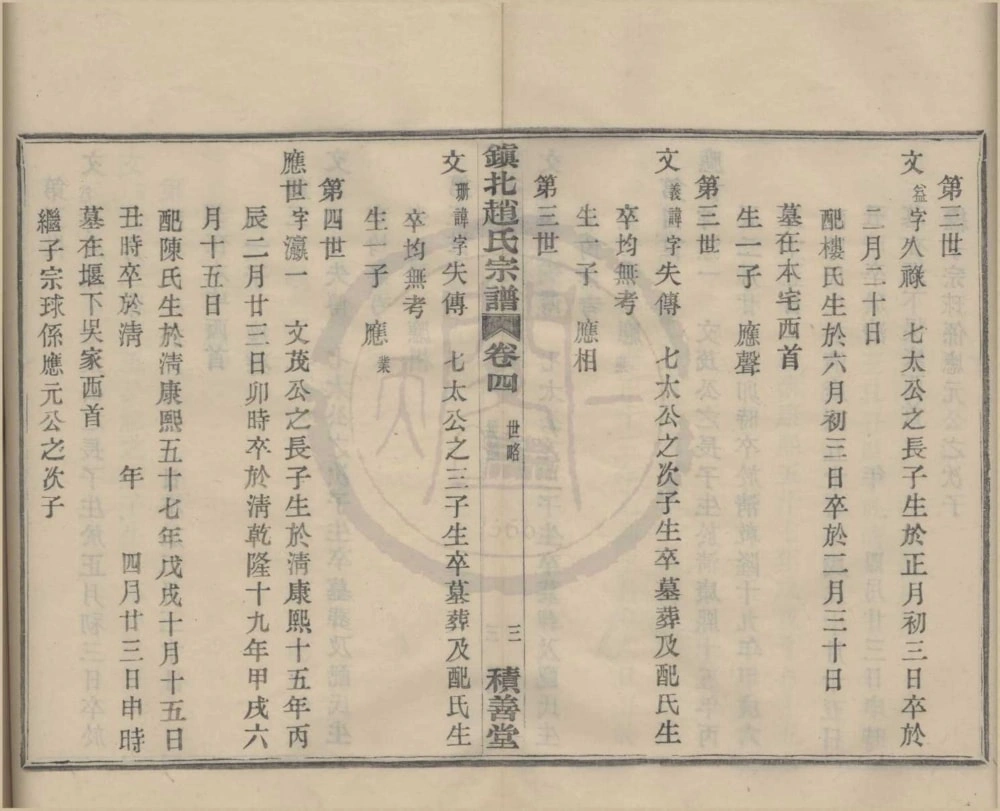 第三世
文鎰字久祿　七太公之長子生於正月初三日卒於
二月二十日
配樓氏生於六月初三日卒於三月三十日
墓在本宅西首
生一子　應聲
第三世
文義諱字失傳　七太公之次子生卒墓葬及配氏生
卒均無考
生一子　應相
第三世
鎮北趙氏宗譜　卷四　世略　三　積善堂
文珊諱字失傳　七太公之三子生卒墓葬及配氏生
卒均無考
生一子　應業
第四世
應世字瀛一　文茂公之長子生於清康熙十五年丙
辰二月廿三日卯時卒於清乾隆十九年甲戌六
月十五日
配陳氏生於清康熙五十七年戊戌十月十五日
丑時卒於清　年　四月廿三日申時
墓在堰下吳家西首
繼子宗球係應元公之次子